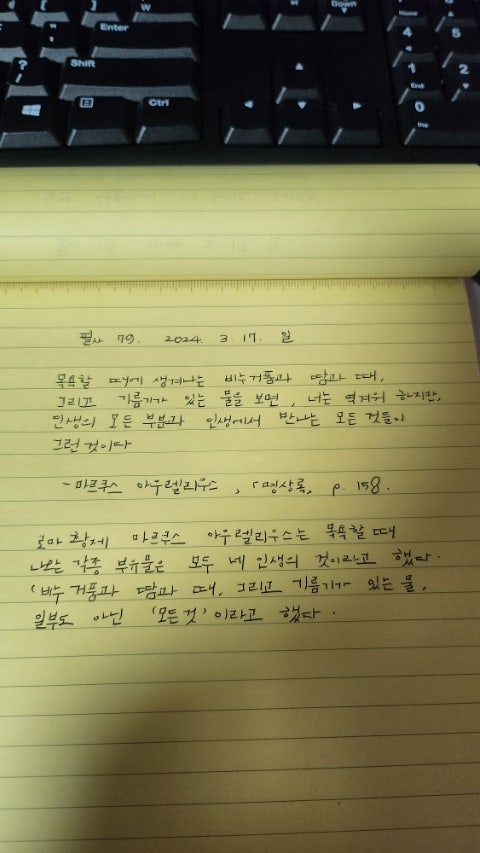 W
Down
Home
Enter
4
5
"
'
?
/
Shift
1
End
2
Ctrl
0
Ins
필사 79. 2024. 3. 17. 일
목욕할 때에 생겨나는 비누거품과 땀과 때,
그리고 기름기가 있는 물을 보면, 너는 역겨워 하지만,
인생의 모든 부분과 인생에서 만나는 모든 것들이
그런 것이다
- 마르쿠스 아우렐리우스, 「명상록」 p. 158.
로마 황제 마르쿠스 아우렐리우스는 목욕할 때
나오는 각종 부유물은 모두 네 인생의 것이라고 했다.
'비누 거품과 땀과 때, 그리고 기름기가 있는 물,
일부도 아닌 '모든 것' 이라고 했다.